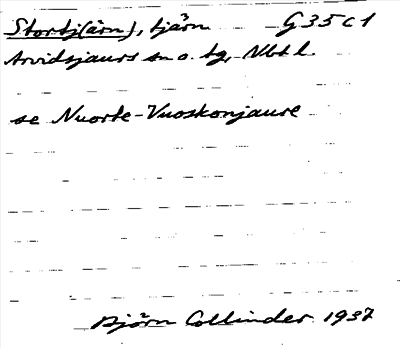 Stortj(ärn), tjärn G35c1
Arvidsjaurs sn o. tg, Nbtl.
se Nuorte-Vuoskonjaure
Björn Collinder 1937